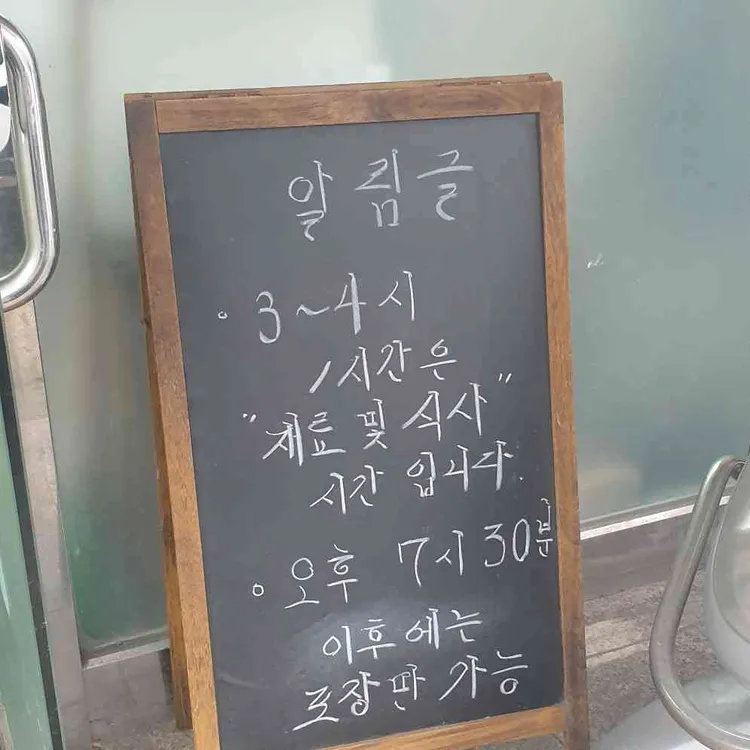 알림글
• 3~4시
1시간은
"재료 및 식사"
시간 입니다.
• 오후 7시 30분
이후에는
포장만 가능